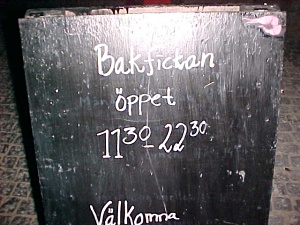 Bakfickan
öppet
11 30 - 22 30
Välkomna